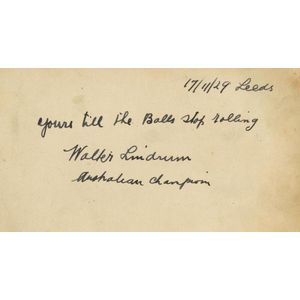 17/11/29 Leeds
Yours till the Balls stop rolling
Walter Lindrum
Australian Champion